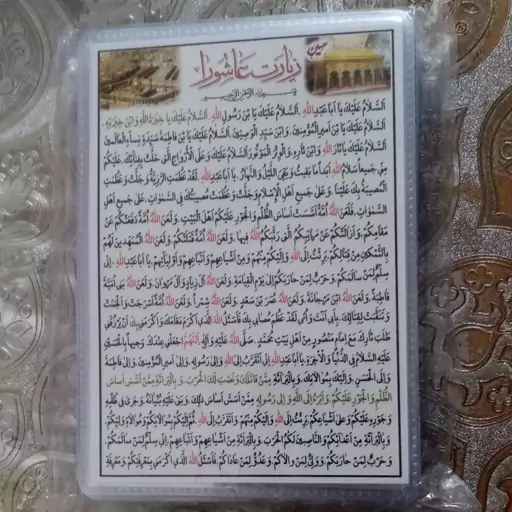 حسین
زیارت عاشورا
بسم الله الرحمن الرحیم
اَلسَّلامُ عَلَيْكَ يا اَبا عَبْدِاللهِ، اَلسَّلامُ عَلَيْكَ يَا بْنَ رَسُولِ اللهِ، اَلسَّلامُ عَلَيْكَ يا خِيَرَةَ اللهِ وَابْنَ خِيَرَتِهِ،
اَلسَّلامُ عَلَيْكَ يَا بْنَ اَميرِ الْمُؤْمِنينَ، وَابْنَ سَيِّدِ الْوَصِيّينَ، اَلسَّلامُ عَلَيْكَ يَا بْنَ فاطِمَةَ سَيِّدَةِ نِساءِ الْعالَمينَ
اَلسَّلامُ عَلَيْكَ يا ثارَ اللهِ وَابْنَ ثارِهِ، وَالْوِتْرَ الْمَوْتُورَ، اَلسَّلامُ عَلَيْكَ وَعَلَى الْاَرْواحِ الَّتي حَلَّتْ بِفِنائِكَ، عَلَيْكُمْ
مِنّي جَميعاً سَلامُ اللهِ اَبَداً ما بَقيتُ وَبَقِيَ اللَّيْلُ وَالنَّهارُ، يا اَبا عَبْدِاللهِ، لَقَدْ عَظُمَتِ الرَّزِيَّةُ وَجَلَّتْ وَعَظُمَتِ
الْمُصيبَةُ بِكَ عَلَيْنا وَعَلى جَميعِ اَهْلِ الْاِسْلامِ وَجَلَّتْ وَعَظُمَتْ مُصيبَتُكَ فِي السَّمواتِ، عَلى جَميعِ اَهْلِ
السَّمواتِ، فَلَعَنَ اللهُ اُمَّةً اَسَّسَتْ اَساسَ الظُّلْمِ وَالْجَوْرِ عَلَيْكُمْ اَهْلَ الْبَيْتِ، وَلَعَنَ اللهُ اُمَّةً دَفَعَتْكُمْ عَنْ
مَقامِكُمْ، وَاَزالَتْكُمْ عَنْ مَراتِبِكُمُ الَّتي رَتَّبَكُمُ اللهُ فيها، وَلَعَنَ اللهُ اُمَّةً قَتَلَتْكُمْ، وَلَعَنَ اللهُ الْمُمَهِّدينَ لَهُمْ
بِالتَّمْكينِ مِنْ قِتالِكُمْ، بَرِئْتُ اِلَى اللهِ وَاِلَيْكُمْ مِنْهُمْ وَمِنْ اَشْياعِهِمْ وَاَتْباعِهِمْ وَاَوْلِيائِهِمْ، يا اَبا عَبْدِاللهِ، اِنّي
سِلْمٌ لِمَنْ سالَمَكُمْ، وَحَرْبٌ لِمَنْ حارَبَكُمْ اِلى يَوْمِ الْقِيامَةِ، وَلَعَنَ اللهُ آلَ زِيادٍ وَآلَ مَرْوانَ، وَلَعَنَ اللهُ بَني اُمَيَّةَ
قاطِبَةً، وَلَعَنَ اللهُ ابْنَ مَرْجانَةَ، وَلَعَنَ اللهُ عُمَرَ بْنَ سَعْدٍ، وَلَعَنَ اللهُ شِمْراً، وَلَعَنَ اللهُ اُمَّةً اَسْرَجَتْ وَاَلْجَمَتْ
وَتَنَقَّبَتْ لِقِتالِكَ، بِاَبي اَنْتَ وَاُمّي، لَقَدْ عَظُمَ مُصابي بِكَ، فَاَسْئَلُ اللهَ الَّذي اَكْرَمَ مَقامَكَ، وَاَكْرَمَني بِكَ، اَنْ يَرْزُقَني
طَلَبَ ثارِكَ مَعَ اِمامٍ مَنْصُورٍ مِنْ اَهْلِ بَيْتِ مُحَمَّدٍ صَلَّى اللهُ عَلَيْهِ وَآلِهِ، اَللّهُمَّ اجْعَلْني عِنْدَكَ وَجيهاً بِالْحُسَيْنِ
عَلَيْهِ السَّلامُ فِي الدُّنْيا وَالْآخِرَةِ، يا اَبا عَبْدِاللهِ، اِنّي اَتَقَرَّبُ اِلَى اللهِ، وَاِلى رَسُولِهِ، وَاِلى اَميرِ الْمُؤْمِنينَ، وَاِلى فاطِمَةَ
وَاِلَى الْحَسَنِ، وَاِلَيْكَ بِمُوالاتِكَ، وَبِالْبَرائَةِ مِمَّنْ قاتَلَكَ وَنَصَبَ لَكَ الْحَرْبَ، وَبِالْبَرائَةِ مِمَّنْ اَسَّسَ اَساسَ
الظُّلْمِ وَالْجَوْرِ عَلَيْكُمْ، وَاَبْرَءُ اِلَى اللهِ وَاِلى رَسُولِهِ مِمَّنْ اَسَّسَ اَساسَ ذلِكَ، وَبَنى عَلَيْهِ بُنْيانَهُ، وَجَرى في ظُلْمِهِ
وَجَوْرِهِ عَلَيْكُمْ وَعَلى اَشْياعِكُمْ، بَرِئْتُ اِلَى اللهِ وَاِلَيْكُمْ مِنْهُمْ، وَاَتَقَرَّبُ اِلَى اللهِ ثُمَّ اِلَيْكُمْ بِمُوالاتِكُمْ وَمُوالاةِ وَلِيِّكُمْ،
وَبِالْبَرائَةِ مِنْ اَعْدائِكُمْ وَالنّاصِبينَ لَكُمُ الْحَرْبَ، وَبِالْبَرائَةِ مِنْ اَشْياعِهِمْ وَاَتْباعِهِمْ، اِنّي سِلْمٌ لِمَنْ سالَمَكُمْ،
وَحَرْبٌ لِمَنْ حارَبَكُمْ، وَوَلِيٌّ لِمَنْ والاكُمْ، وَعَدُوٌّ لِمَنْ عاداكُمْ، فَاَسْئَلُ اللهَ الَّذي اَكْرَمَني بِمَعْرِفَتِكُمْ، وَمَعْرِفَةِ